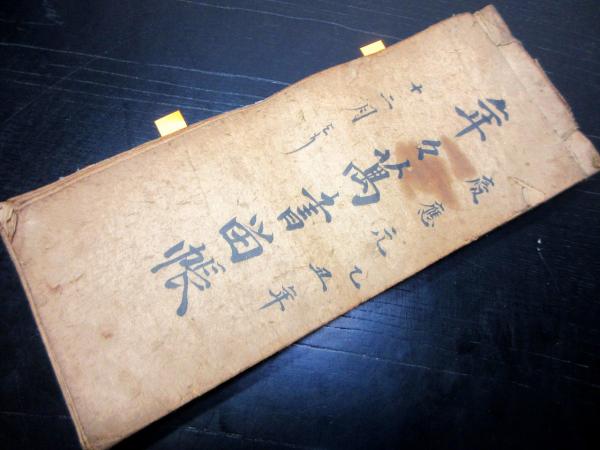 慶應元乙丑年
年々萬書留帳
十二月